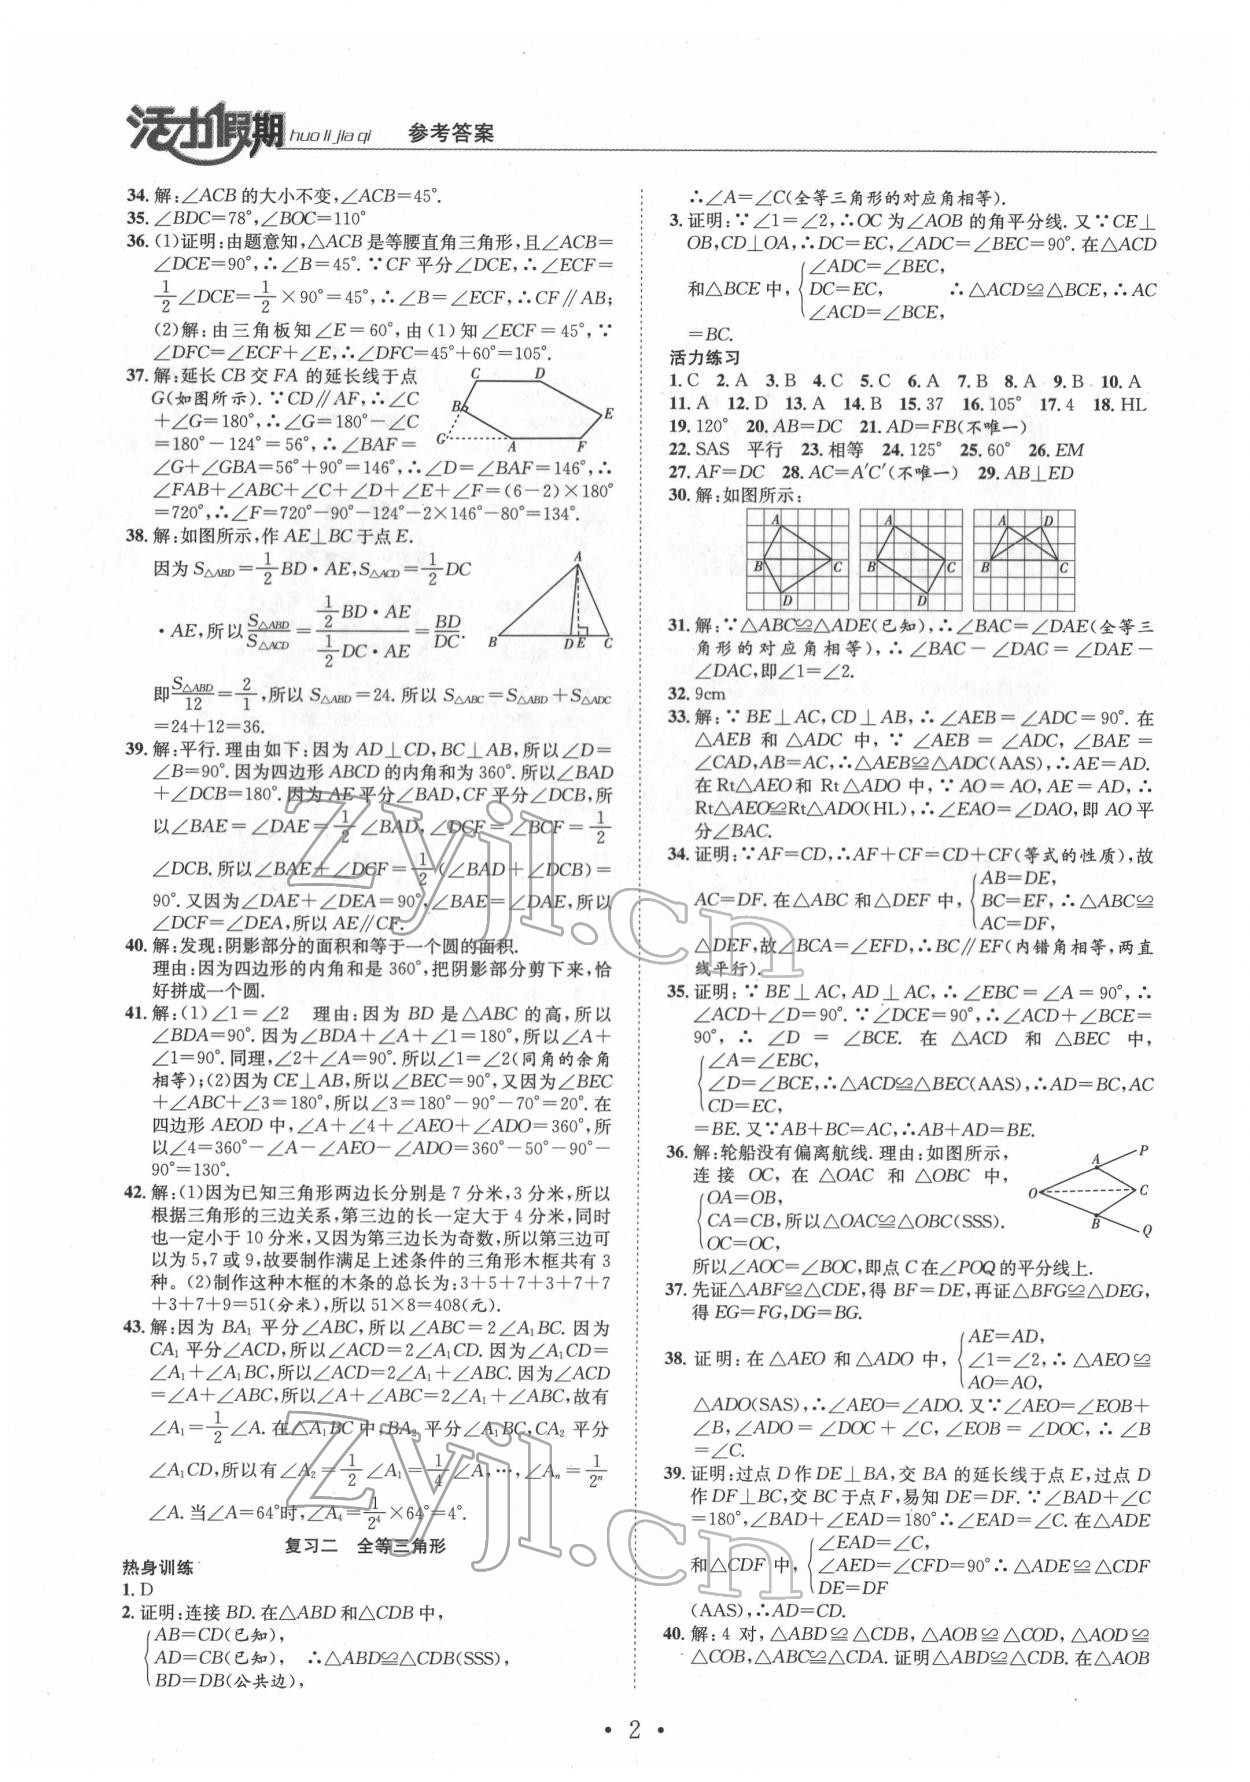 活力假期 huo li jia qi 参考答案
34. 解:∠ACB的大小不变,∠ACB=45°.
35. ∠BDC=78°,∠BOC=110°
36. (1)证明:由题意知,△ACB是等腰直角三角形,且∠ACB=
∠DCE=90°,∴∠B=45°.∵CF平分∠DCE,∴∠ECF=
1/2∠DCE=1/2×90°=45°,∴∠B=∠ECF,∴CF∥AB;
(2)解:由三角板知∠E=60°,由(1)知∠ECF=45°,∵
∠DFC=∠ECF+∠E,∴∠DFC=45°+60°=105°.
37. 解:延长CB交FA的延长线于点
G(如图所示).∵CD∥AF,∴∠C
+∠G=180°,∴∠G=180°-∠C
=180°-124°=56°,∴∠BAF=
∠G+∠GBA=56°+90°=146°,∴∠D=∠BAF=146°,∴
∠FAB+∠ABC+∠C+∠D+∠E+∠F=(6-2)×180°
=720°,∴∠F=720°-90°-124°-2×146°-80°=134°.
C D B E G A F
38. 解:如图所示,作AE⊥BC于点E.
因为S△ABD=1/2BD·AE,S△ACD=1/2DC
·AE,所以S△ABD/S△ACD=(1/2BD·AE)/(1/2DC·AE)=BD/DC.
A B D E C
即S△ABD/12=2/1,所以S△ABD=24.所以S△ABC=S△ABD+S△ADC
=24+12=36.
39. 解:平行.理由如下:因为AD⊥CD,BC⊥AB,所以∠D=
∠B=90°.因为四边形ABCD的内角和为360°.所以∠BAD
+∠DCB=180°.因为AE平分∠BAD,CF平分∠DCB,所
以∠BAE=∠DAE=1/2∠BAD,∠DCF=∠BCF=1/2
∠DCB.所以∠BAE+∠DCF=1/2(∠BAD+∠DCB)=
90°.又因为∠DAE+∠DEA=90°,∠BAE=∠DAE,所以
∠DCF=∠DEA,所以AE∥CF.
40. 解:发现:阴影部分的面积和等于一个圆的面积.
理由:因为四边形的内角和是360°,把阴影部分剪下来,恰
好拼成一个圆.
41. 解:(1)∠1=∠2 理由:因为BD是△ABC的高,所以
∠BDA=90°.因为∠BDA+∠A+∠1=180°,所以∠A+
∠1=90°.同理,∠2+∠A=90°.所以∠1=∠2(同角的余角
相等);(2)因为CE⊥AB,所以∠BEC=90°,又因为∠BEC
+∠ABC+∠3=180°,所以∠3=180°-90°-70°=20°.在
四边形AEOD中,∠A+∠4+∠AEO+∠ADO=360°,所
以∠4=360°-∠A-∠AEO-∠ADO=360°-50°-90°-
90°=130°.
42. 解:(1)因为已知三角形两边长分别是7分米,3分米,所以
根据三角形的三边关系,第三边的长一定大于4分米,同时
也一定小于10分米,又因为第三边长为奇数,所以第三边可
以为5,7或9,故要制作满足上述条件的三角形木框共有3
种。(2)制作这种木框的木条的总长为:3+5+7+3+7+7
+3+7+9=51(分米),所以51×8=408(元).
43. 解:因为BA₁平分∠ABC,所以∠ABC=2∠A₁BC.因为
CA₁平分∠ACD,所以∠ACD=2∠A₁CD.因为∠A₁CD=
∠A₁+∠A₁BC,所以∠ACD=2∠A₁+∠ABC.因为∠ACD
=∠A+∠ABC,所以∠A+∠ABC=2∠A₁+∠ABC,故有
∠A₁=1/2∠A.在△A₁BC中,BA₂平分∠A₁BC,CA₂平分
∠A₁CD,所以有∠A₂=1/2∠A₁=1/4∠A,…,∠Aₙ=1/2ⁿ
∠A.当∠A=64°时,∠A₄=1/2⁴×64°=4°.
复习二 全等三角形
热身训练
1. D
2. 证明:连接BD.在△ABD和△CDB中,
AB=CD(已知),
AD=CB(已知), ∴△ABD≌△CDB(SSS),
BD=DB(公共边),
∴∠A=∠C(全等三角形的对应角相等).
3. 证明:∵∠1=∠2,∴OC为∠AOB的角平分线.又∵CE⊥
OB,CD⊥OA,∴DC=EC,∠ADC=∠BEC=90°.在△ACD
和△BCE中,{∠ADC=∠BEC,
DC=EC, ∴△ACD≌△BCE,∴AC
∠ACD=∠BCE,
=BC.
活力练习
1. C 2. A 3. B 4. C 5. C 6. A 7. B 8. A 9. B 10. A
11. A 12. D 13. A 14. B 15. 37 16. 105° 17. 4 18. HL
19. 120° 20. AB=DC 21. AD=FB(不唯一)
22. SAS 平行 23. 相等 24. 125° 25. 60° 26. EM
27. AF=DC 28. AC=A′C′(不唯一) 29. AB⊥ED
30. 解:如图所示:
A B C D A B C D A D B C
31. 解:∵△ABC≌△ADE(已知),∴∠BAC=∠DAE(全等三
角形的对应角相等),∴∠BAC-∠DAC=∠DAE-
∠DAC,即∠1=∠2.
32. 9cm
33. 解:∵BE⊥AC,CD⊥AB,∴∠AEB=∠ADC=90°.在
△AEB和△ADC中,∵∠AEB=∠ADC,∠BAE=
∠CAD,AB=AC,∴△AEB≌△ADC(AAS),∴AE=AD.
在Rt△AEO和Rt△ADO中,∵AO=AO,AE=AD,∴
Rt△AEO≌Rt△ADO(HL),∴∠EAO=∠DAO,即AO平
分∠BAC.
34. 证明:∵AF=CD,∴AF+CF=CD+CF(等式的性质),故
AC=DF.在△ABC和△DEF中,{AB=DE,
BC=EF,∴△ABC≌
AC=DF,
△DEF,故∠BCA=∠EFD,∴BC∥EF(内错角相等,两直
线平行).
35. 证明:∵BE⊥AC,AD⊥AC,∴∠EBC=∠A=90°,∴
∠ACD+∠D=90°.∵∠DCE=90°,∴∠ACD+∠BCE=
90°,∴∠D=∠BCE.在△ACD和△BEC中,
∠A=∠EBC,
∠D=∠BCE,∴△ACD≌△BEC(AAS),∴AD=BC,AC
CD=EC,
=BE.又∵AB+BC=AC,∴AB+AD=BE.
36. 解:轮船没有偏离航线.理由:如图所示,
连接OC,在△OAC和△OBC中,
OA=OB,
CA=CB,所以△OAC≌△OBC(SSS).
OC=OC,
P A O C B Q
所以∠AOC=∠BOC,即点C在∠POQ的平分线上.
37. 先证△ABF≌△CDE,得BF=DE,再证△BFG≌△DEG,
得EG=FG,DG=BG.
38. 证明:在△AEO和△ADO中,{AE=AD,
∠1=∠2,∴△AEO≌
AO=AO,
△ADO(SAS),∴∠AEO=∠ADO.又∵∠AEO=∠EOB+
∠B,∠ADO=∠DOC+∠C,∠EOB=∠DOC,∴∠B
=∠C.
39. 证明:过点D作DE⊥BA,交BA的延长线于点E,过点D
作DF⊥BC,交BC于点F,易知DE=DF.∵∠BAD+∠C
=180°,∠BAD+∠EAD=180°∴∠EAD=∠C.在△ADE
和△CDF中{∠EAD=∠C,
∠AED=∠CFD=90°∴△ADE≌△CDF
DE=DF
(AAS),∴AD=CD.
40. 解:4对,△ABD≌△CDB,△AOB≌△COD,△AOD≌
△COB,△ABC≌△CDA.证明△ABD≌△CDB.在△AOB
zyjl.cn
zyjl.cn
· 2 ·